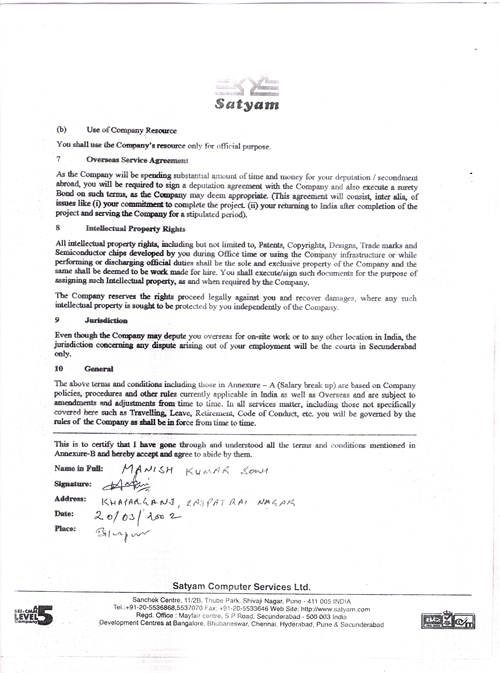 Satyam
(b) Use of Company Resource
You shall use the Company's resource only for official purpose.
7 Overseas Service Agreement
As the Company will be spending substantial amount of time and money for your deputation / secondment
abroad, you will be required to sign a deputation agreement with the Company and also execute a surety
Bond on such terms, as the Company may deem appropriate. (This agreement will consist, inter alia, of
issues like (i) your commitment to complete the project. (ii) your returning to India after completion of the
project and serving the Company for a stipulated period).
8 Intellectual Property Rights
All intellectual property rights, including but not limited to, Patents, Copyrights, Designs, Trade marks and
Semiconductor chips developed by you during Office time or using the Company infrastructure or while
performing or discharging official duties shall be the sole and exclusive property of the Company and the
same shall be deemed to be work made for hire. You shall execute/sign such documents for the purpose of
assigning such Intellectual property, as and when required by the Company.
The Company reserves the rights proceed legally against you and recover damages, where any such
intellectual property is sought to be protected by you independently of the Company.
9 Jurisdiction
Even though the Company may depute you overseas for on-site work or to any other location in India, the
jurisdiction concerning any dispute arising out of your employment will be the courts in Secunderabad
only.
10 General
The above terms and conditions including those in Annexure – A (Salary break up) are based on Company
policies, procedures and other rules currently applicable in India as well as Overseas and are subject to
amendments and adjustments from time to time. In all services matter, including those not specifically
covered here such as Travelling, Leave, Retirement, Code of Conduct, etc. you will be governed by the
rules of the Company as shall be in force from time to time.
This is to certify that I have gone through and understood all the terms and conditions mentioned in
Annexure-B and hereby accept and agree to abide by them.
Name in Full: MANISH KUMAR SONI
Signature:
Address: KHAPARGANJ, LAJPAT RAI NAGAR
Date: 20/03/2002
Place:
Satyam Computer Services Ltd.
Sanchek Centre, 11/2B, Thube Park, Shivaji Nagar, Pune - 411 005 INDIA
Tel.:+91-20-5536868,5537070 Fax: +91-20-5533646 Web Site: http://www.satyam.com
Regd. Office : Mayfair centre, S P Road, Secunderabad - 500 003 India
Development Centres at Bangalore, Bhubaneswar, Chennai, Hyderabad, Pune & Secunderabad
SEI-CMM
LEVEL 5
Company